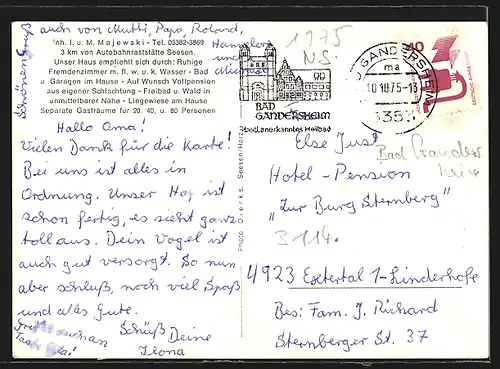 Schönen Gruß auch von Mutti, Papa, Roland,
Inh. I. u. M. Majewski - Tel. 05382-3869
3 km von Autobahnraststätte Seesen.
Unser Haus empfiehlt sich durch: Ruhige
Fremdenzimmer m. fl. w. u. k. Wasser - Bad
u. Garagen im Hause - Auf Wunsch Vollpension
aus eigener Schlachtung - Freibad u. Wald in
unmittelbarer Nähe - Liegewiese am Hause
Separate Gasträume für 20, 40, u. 80 Personen
und
Hallo Oma!
Vielen Dank für die Karte!
Bei uns ist alles in
Ordnung. Unser Hof ist
schon fertig, es sieht ganz
toll aus. Dein Vogel ist
auch gut versorgt. So nun
aber schluß, noch viel Spaß
und alles Gute.
Schüß Deine
Ilona
1975
NS.
BAD
GANDERSHEIM
Staatl. anerkanntes Heilbad
BAD GANDERSHEIM
ma
10.10.75-13
3353
40
Else Just
Bad Gandersheim
Hotel - Pension
"Zur Burg Sternberg"
3114.
4923 Extertal 1-Linderhofe
Bes: Fam. J. Richard
Sternberger St. 37